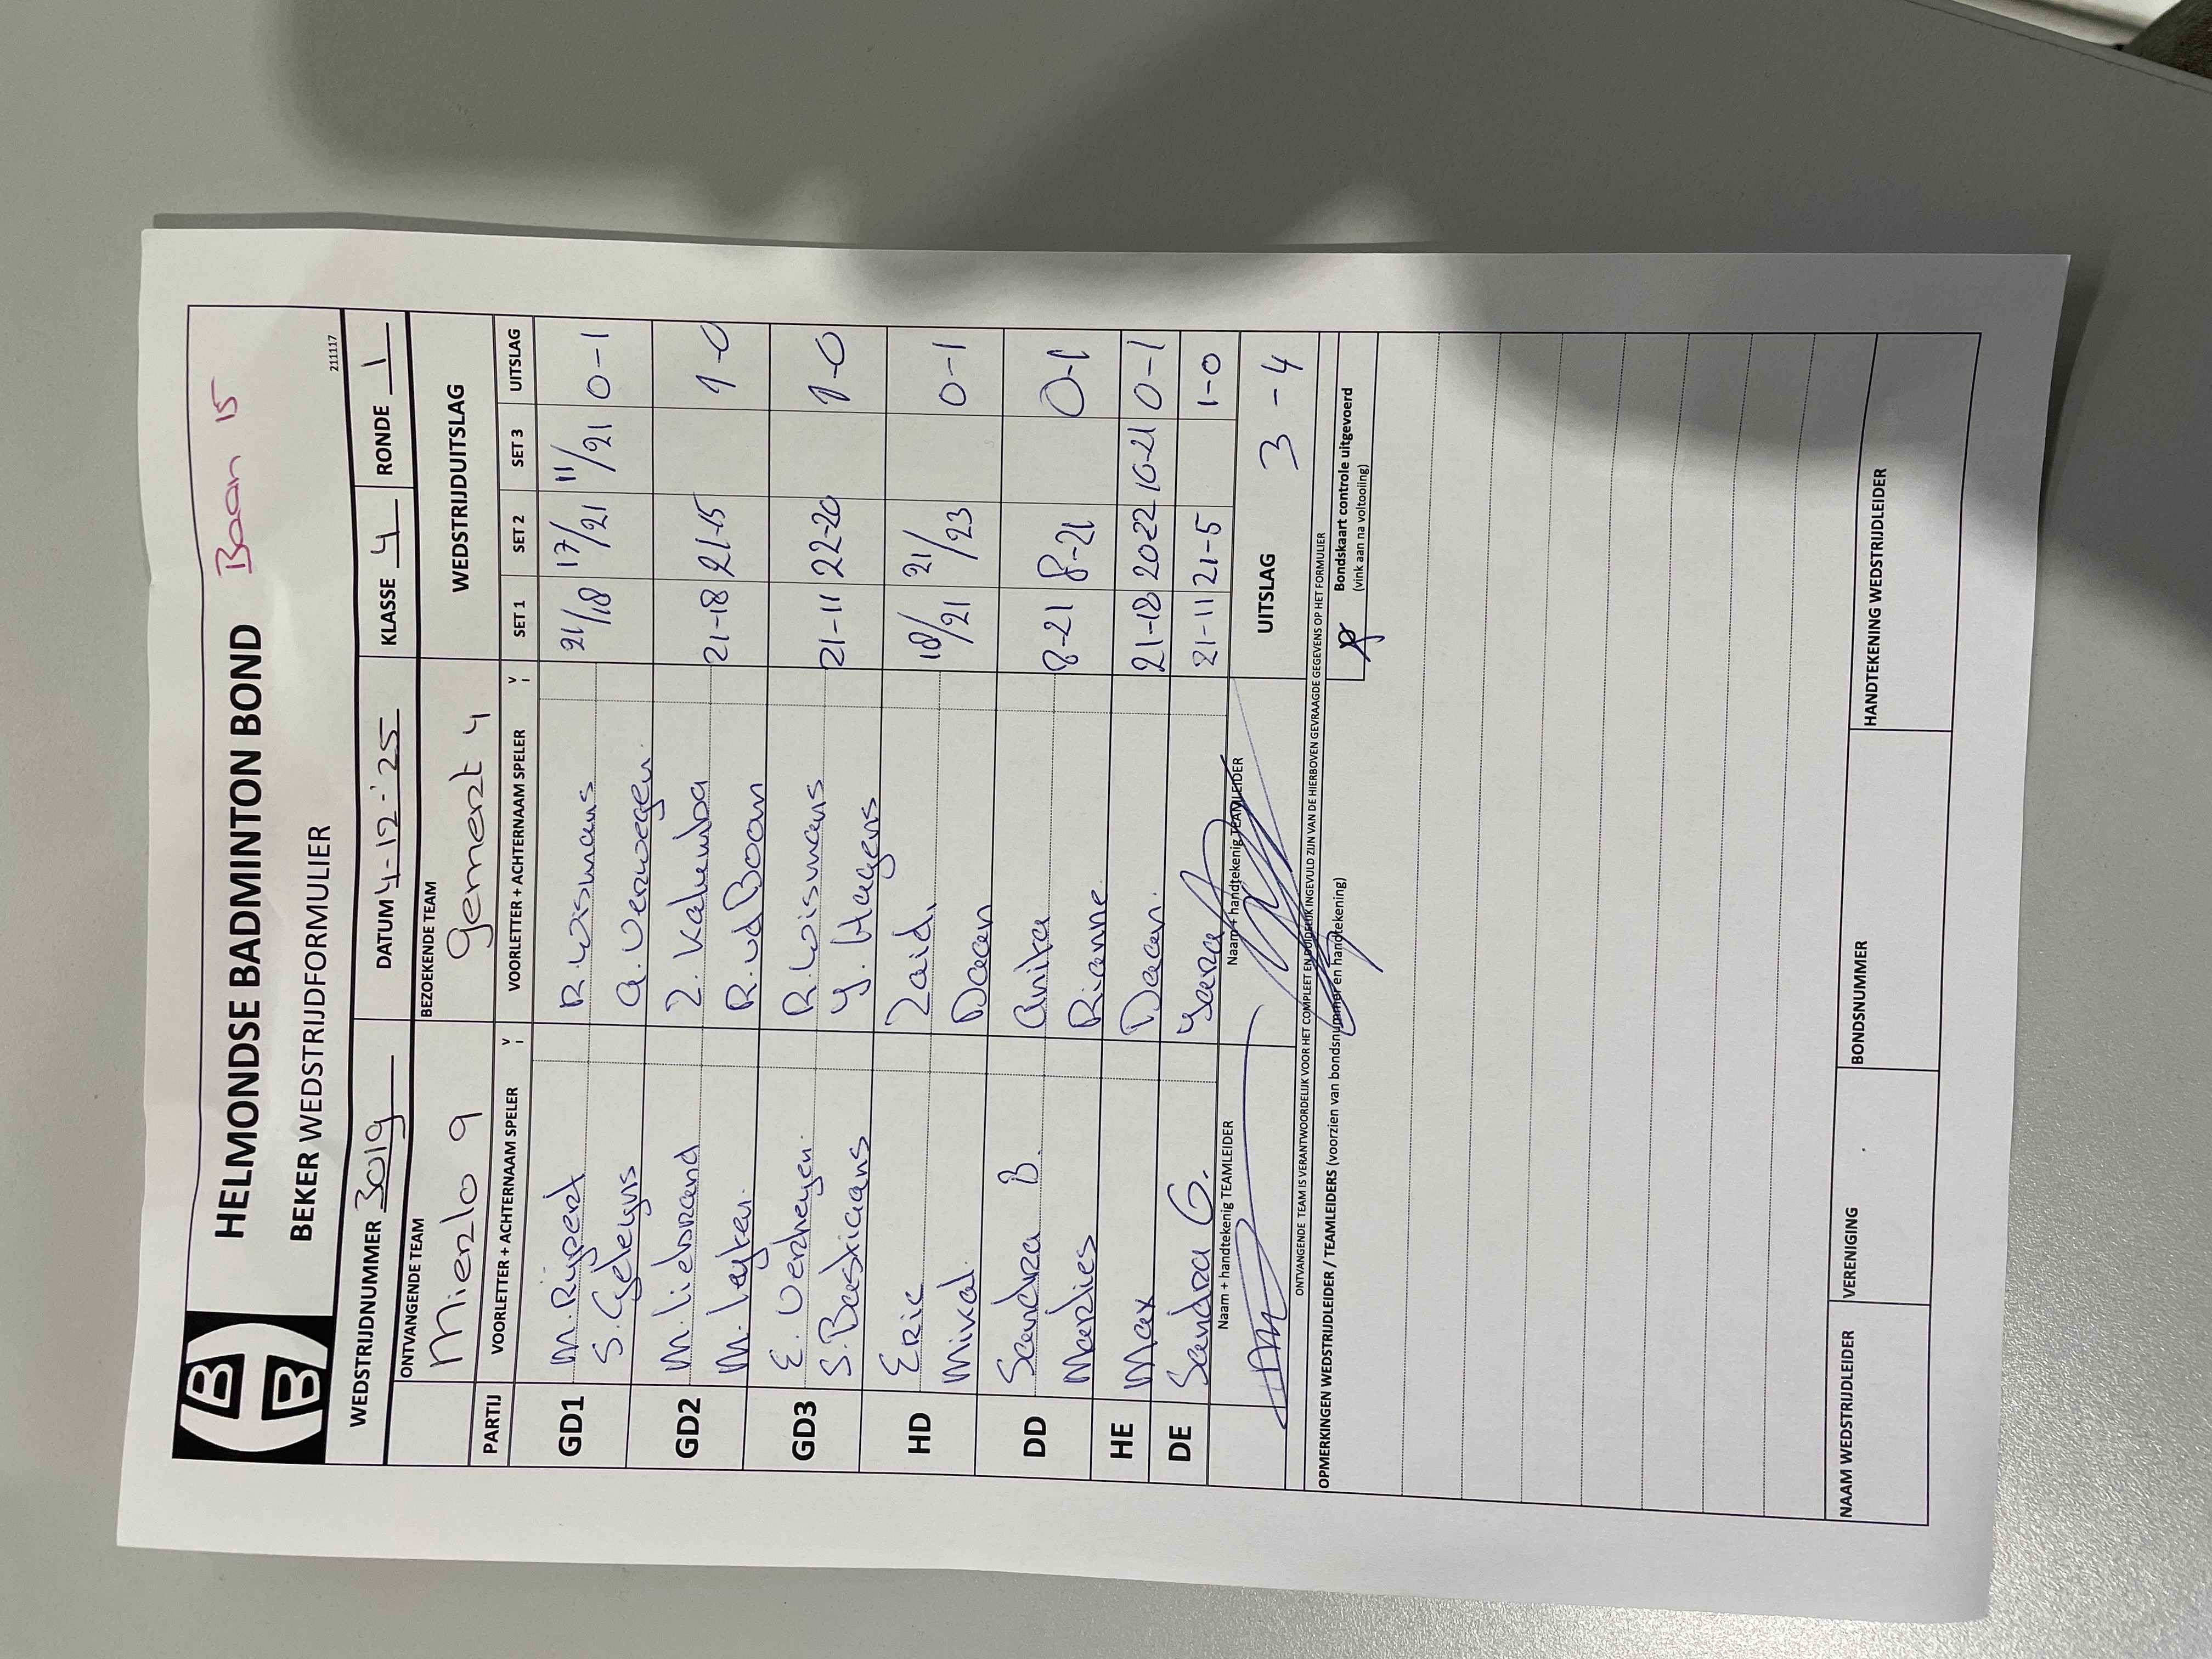 HELMONDSE BADMINTON BOND Baan 15
BEKER WEDSTRIJDFORMULIER
211117
WEDSTRIJDNUMMER 3019 DATUM 4-12-'25 KLASSE 4 RONDE 1
ONTVANGENDE TEAM BEZOEKENDE TEAM WEDSTRIJDUITSLAG
Mierlo 9 Gemert 4
PARTIJ VOORLETTER + ACHTERNAAM SPELER V I VOORLETTER + ACHTERNAAM SPELER V I SET 1 SET 2 SET 3 UITSLAG
GD1 M. Rijpert R. Loismans 21/18 17/21 11/21 0-1
S. Gyleyns A. Verwoegen.
GD2 M. Liebrand Z. Kalumba 21-18 21-15 1-0
M. Leyten. R. vd Boom
GD3 E. Verheyen. R. Loismans 21-11 22-20 1-0
S. Bastiaans Y. Hagens
HD Eric Zaid. 18/21 21/23 0-1
Mikal. Daan
DD Sandra B. Anika 8-21 8-21 0-1
Marlies Rianne
HE Max Daan. 21-18 20-22 16-21 0-1
DE Sandra G. Yara 21-11 21-5 1-0
Naam + handtekenig TEAMLEIDER Naam + handtekenig TEAMLEIDER UITSLAG 3 - 4
ONTVANGENDE TEAM IS VERANTWOORDELIJK VOOR HET COMPLEET EN DUIDELIJK INGEVULD ZIJN VAN DE HIERBOVEN GEVRAAGDE GEGEVENS OP HET FORMULIER
OPMERKINGEN WEDSTRIJDLEIDER / TEAMLEIDERS (voorzien van bondsnummer en handtekening) Bondskaart controle uitgevoerd
(vink aan na voltooiing)
NAAM WEDSTRIJDLEIDER VERENIGING BONDSNUMMER HANDTEKENING WEDSTRIJDLEIDER